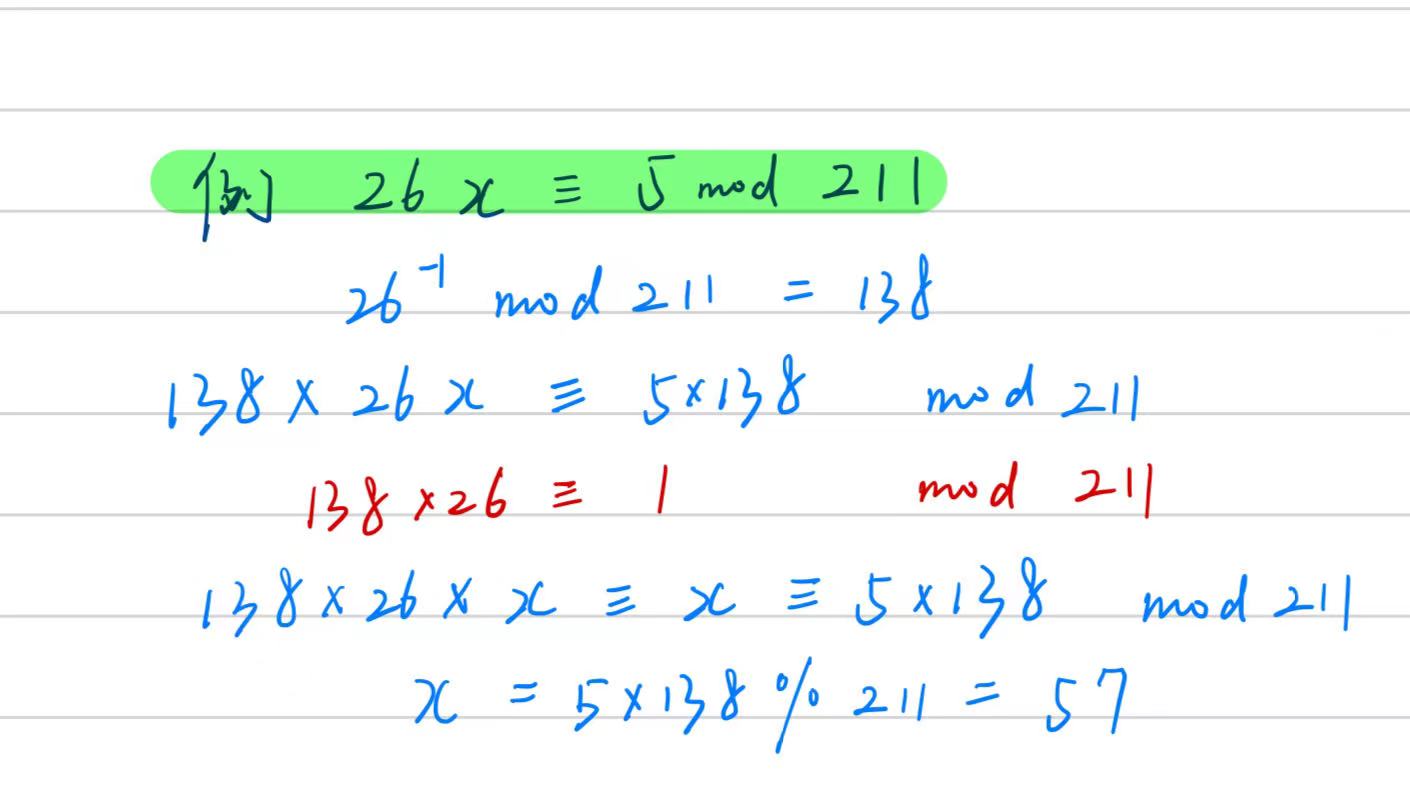 例 26 x ≡ 5 mod 211
26⁻¹ mod 211 = 138
138 × 26 x ≡ 5×138 mod 211
138 ×26 ≡ 1 mod 211
138 × 26 × x ≡ x ≡ 5 ×138 mod 211
x = 5×138 % 211 = 57